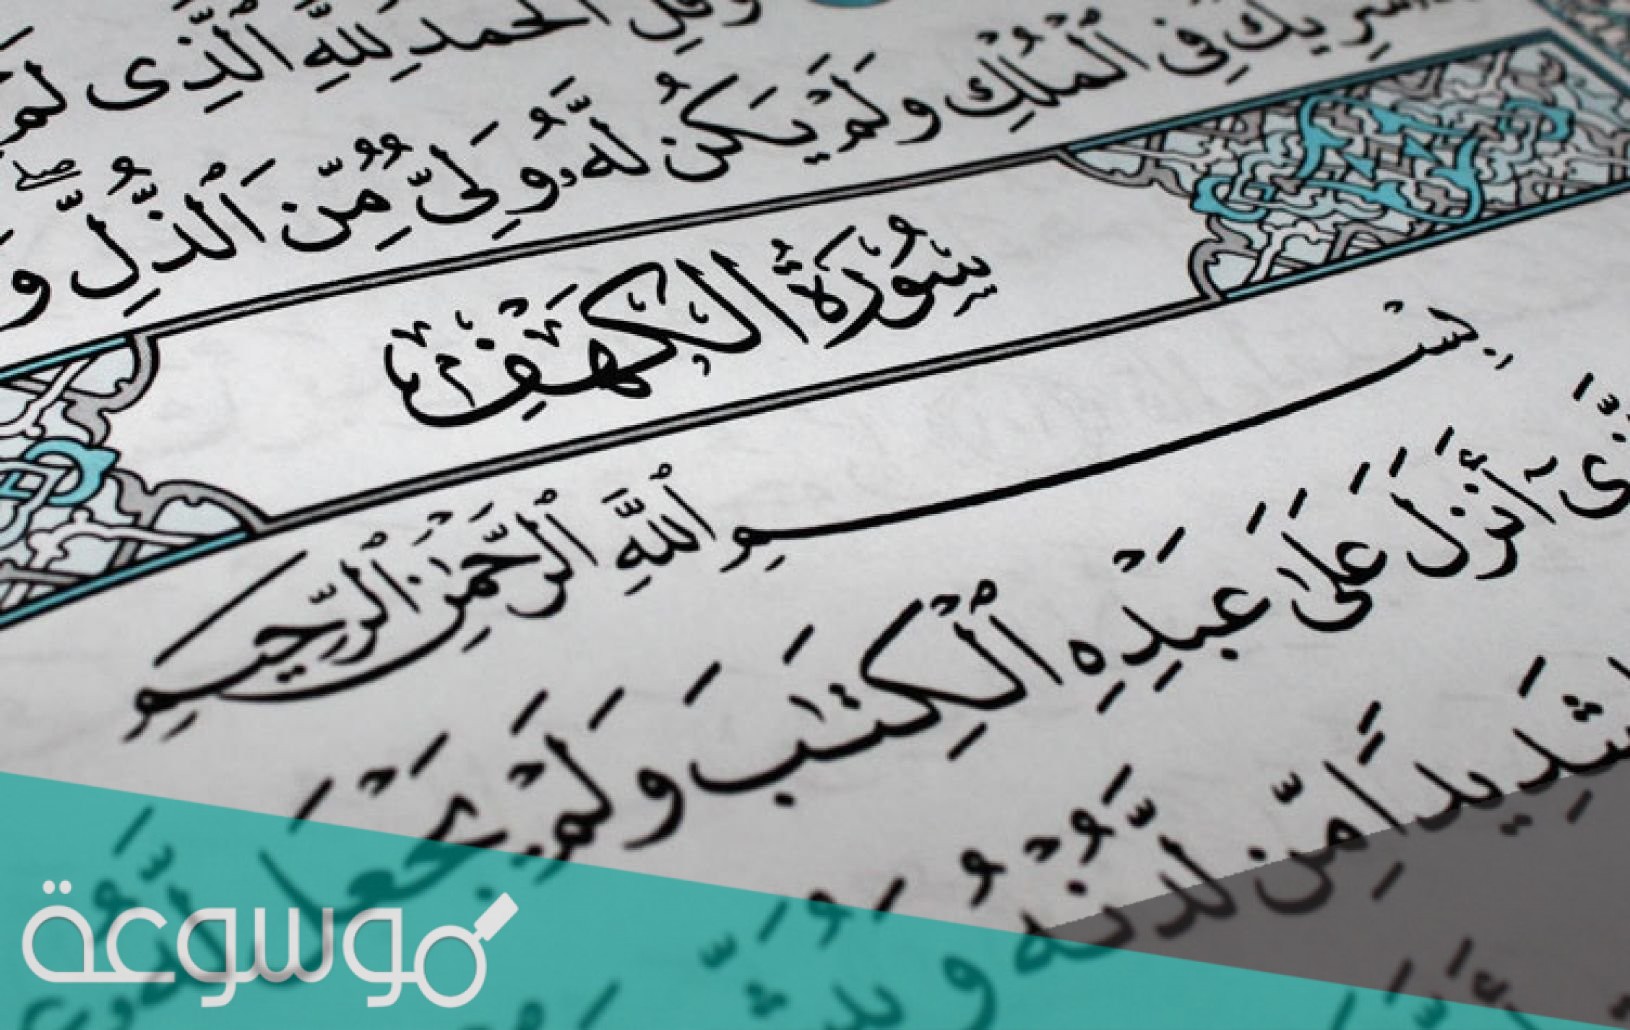 وَقُلِ ٱلْحَمْدُ لِلَّهِ ٱلَّذِى لَمْ
شَرِيكٌ فِى ٱلْمُلْكِ وَلَمْ يَكُن لَّهُۥ وَلِىٌّ مِّنَ ٱلذُّلِّ ۖ وَ
سُورَةُ الكَهْفِ
بِسْمِ ٱللَّهِ ٱلرَّحْمَٰنِ ٱلرَّحِيمِ
أَنزَلَ عَلَىٰ عَبْدِهِ ٱلْكِتَٰبَ وَلَمْ يَجْعَل لَّهُۥ
شَدِيدًا مِّن لَّدُنْهُ وَيُبَشِّرَ
موسوعة